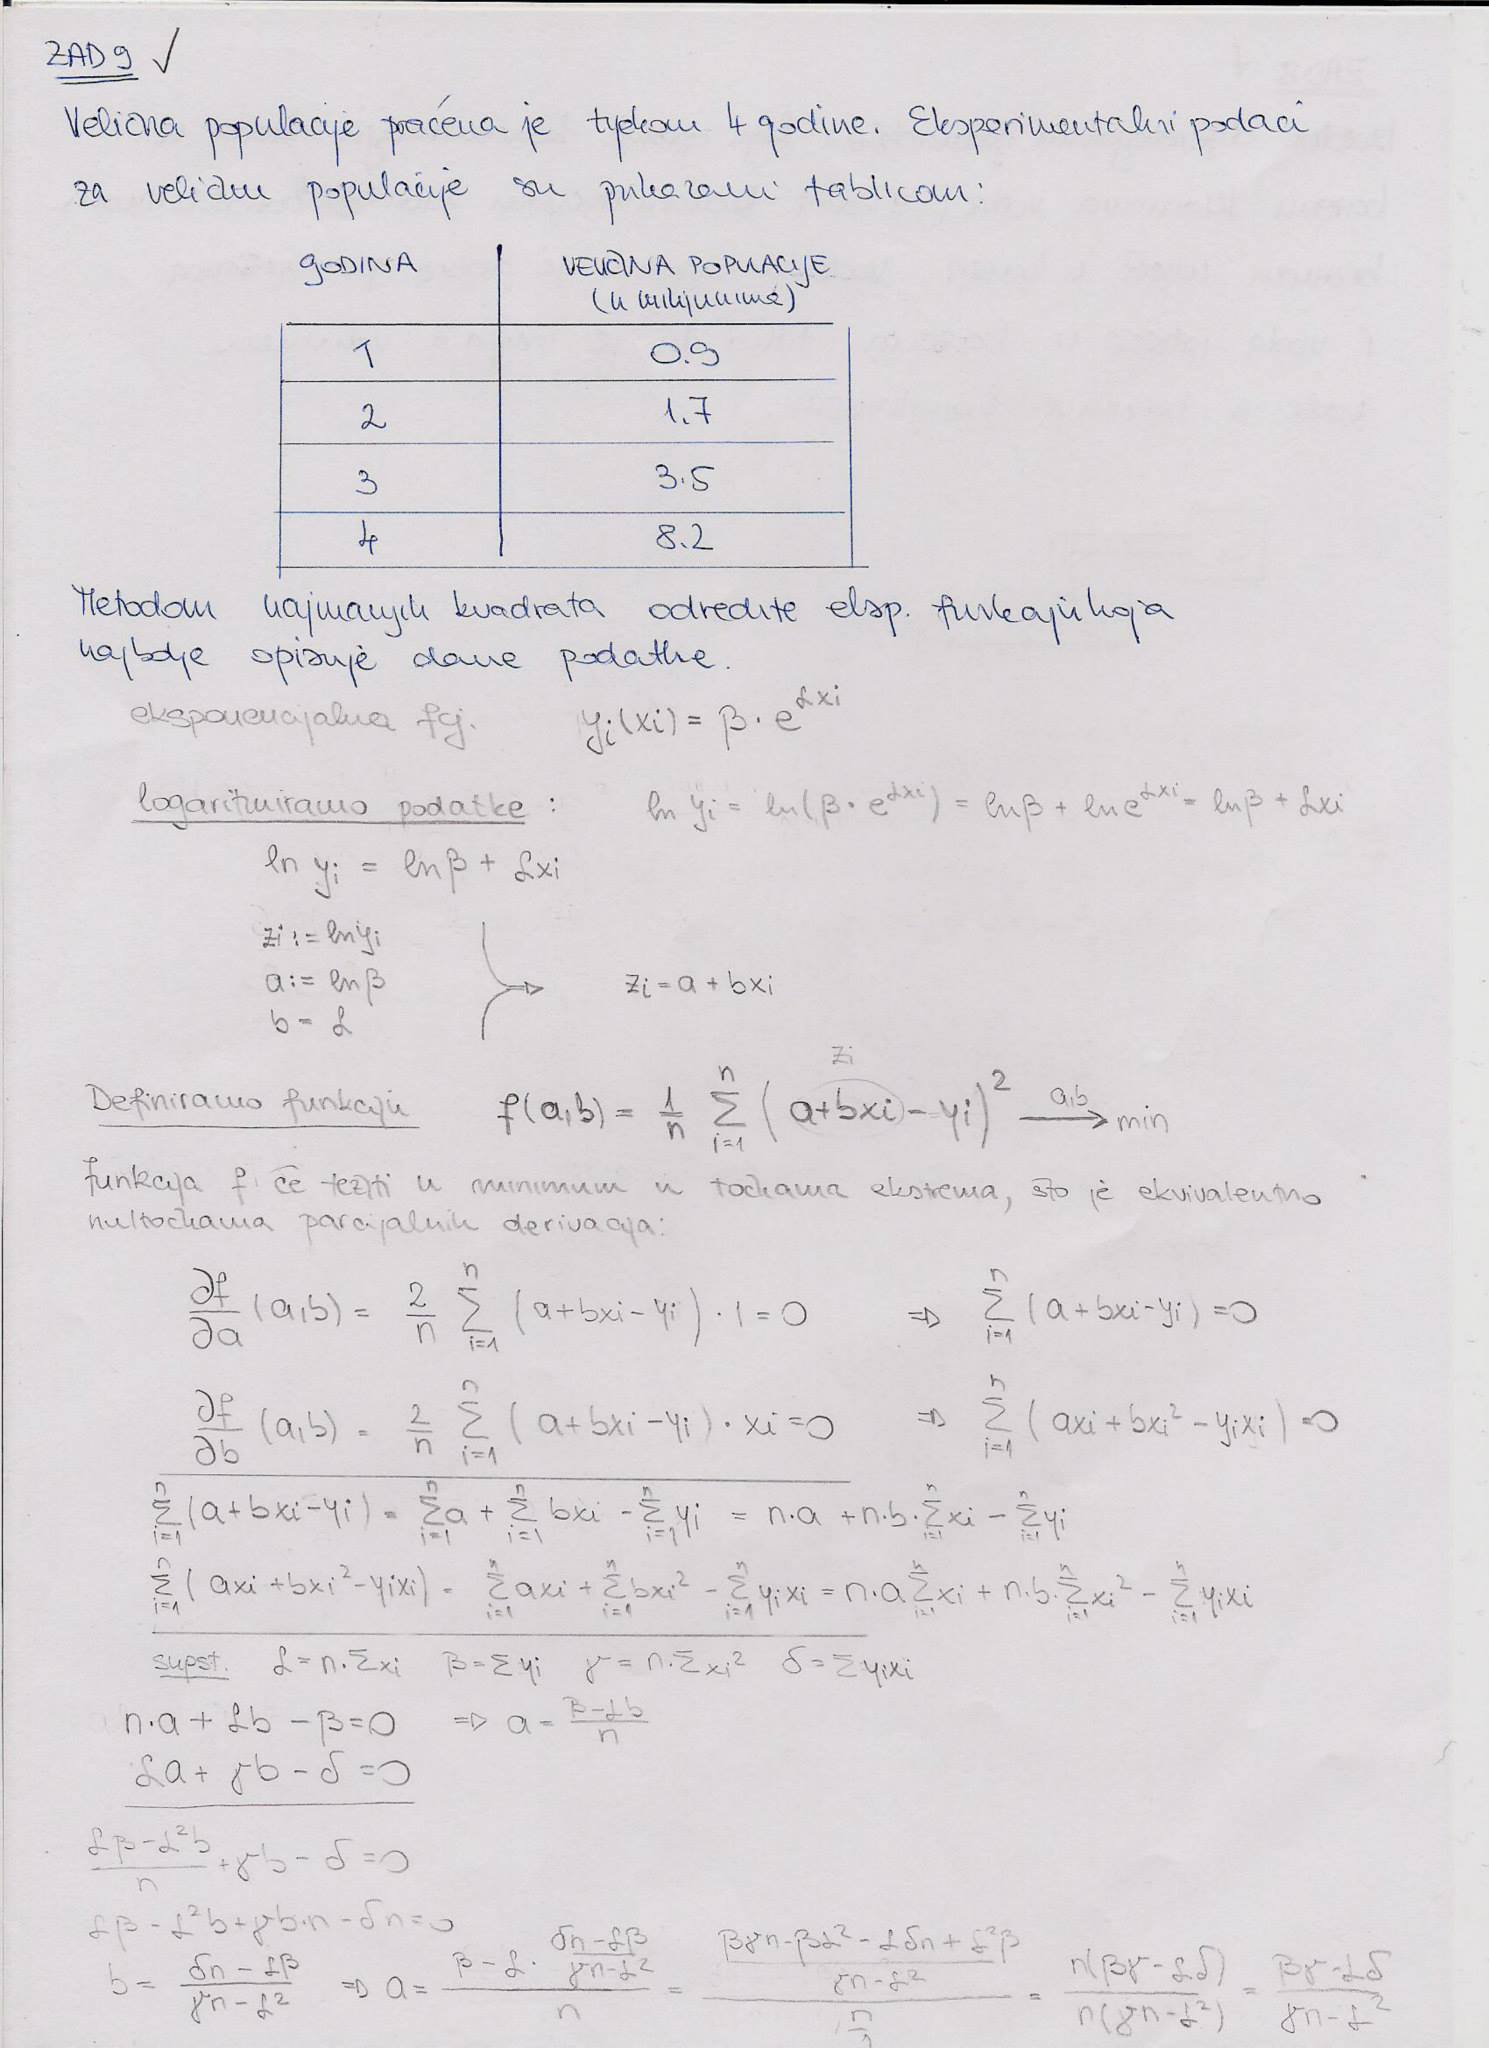 ZAD 9 ✓
Veličina populacije praćena je tyekom 4 godine. Eksperimentalni podaci
za veličinu populacije su prikazani tablicom:
GODINA VELIČINA POPULACIJE
(u milijunima)
1 0.9
2 1.7
3 3.5
4 8.2
Metodom najmanjih kvadrata odredite eksp. funkciju koja
najbolje opisuje dane podatke.
eksponencijalna fcj. yi(xi) = β · e^αxi
logaritmiramo podatke : ln yi = ln(β · e^αxi) = lnβ + ln e^αxi = lnβ + αxi
ln yi = lnβ + αxi
zi := ln yi
a := lnβ
b = α
⇒ zi = a + bxi
zi
Definiramo funkciju f(a,b) = 1/n Σ_{i=1}^{n} (a+bxi - yi)² →^{a,b} min
funkcija f će težiti u minimum u točkama ekstrema, što je ekvivalentno
nultočkama parcijalnih derivacija:
∂f/∂a (a,b) = 2/n Σ_{i=1}^{n} (a+bxi-yi) · 1 = 0 ⇒ Σ_{i=1}^{n} (a+bxi-yi) = 0
∂f/∂b (a,b) = 2/n Σ_{i=1}^{n} (a+bxi-yi) · xi = 0 ⇒ Σ_{i=1}^{n} (axi+bxi² - yixi) = 0
Σ_{i=1}^{n} (a+bxi-yi) = Σ_{i=1}^{n} a + Σ_{i=1}^{n} bxi - Σ_{i=1}^{n} yi = n·a + n·b·Σ_{i=1}^{n} xi - Σ_{i=1}^{n} yi
Σ_{i=1}^{n} (axi+bxi²-yixi) = Σ_{i=1}^{n} axi + Σ_{i=1}^{n} bxi² - Σ_{i=1}^{n} yixi = n·a Σ_{i=1}^{n} xi + n·b·Σ_{i=1}^{n} xi² - Σ_{i=1}^{n} yixi
supst. α = n·Σxi β = Σyi γ = n·Σxi² δ = Σyixi
n·a + αb - β = 0 ⇒ a = (β-αb)/n
αa + γb - δ = 0
(αβ-α²b)/n + γb - δ = 0
αβ - α²b + γb·n - δn = 0
b = (δn-αβ)/(γn-α²) ⇒ a = (β - α · (δn-αβ)/(γn-α²))/n = ((βγn - βα² - αδn + α²β)/(γn-α²))/(n/1) = n(βγ-αδ)/n(γn-α²) = (βγ-αδ)/(γn-α²)